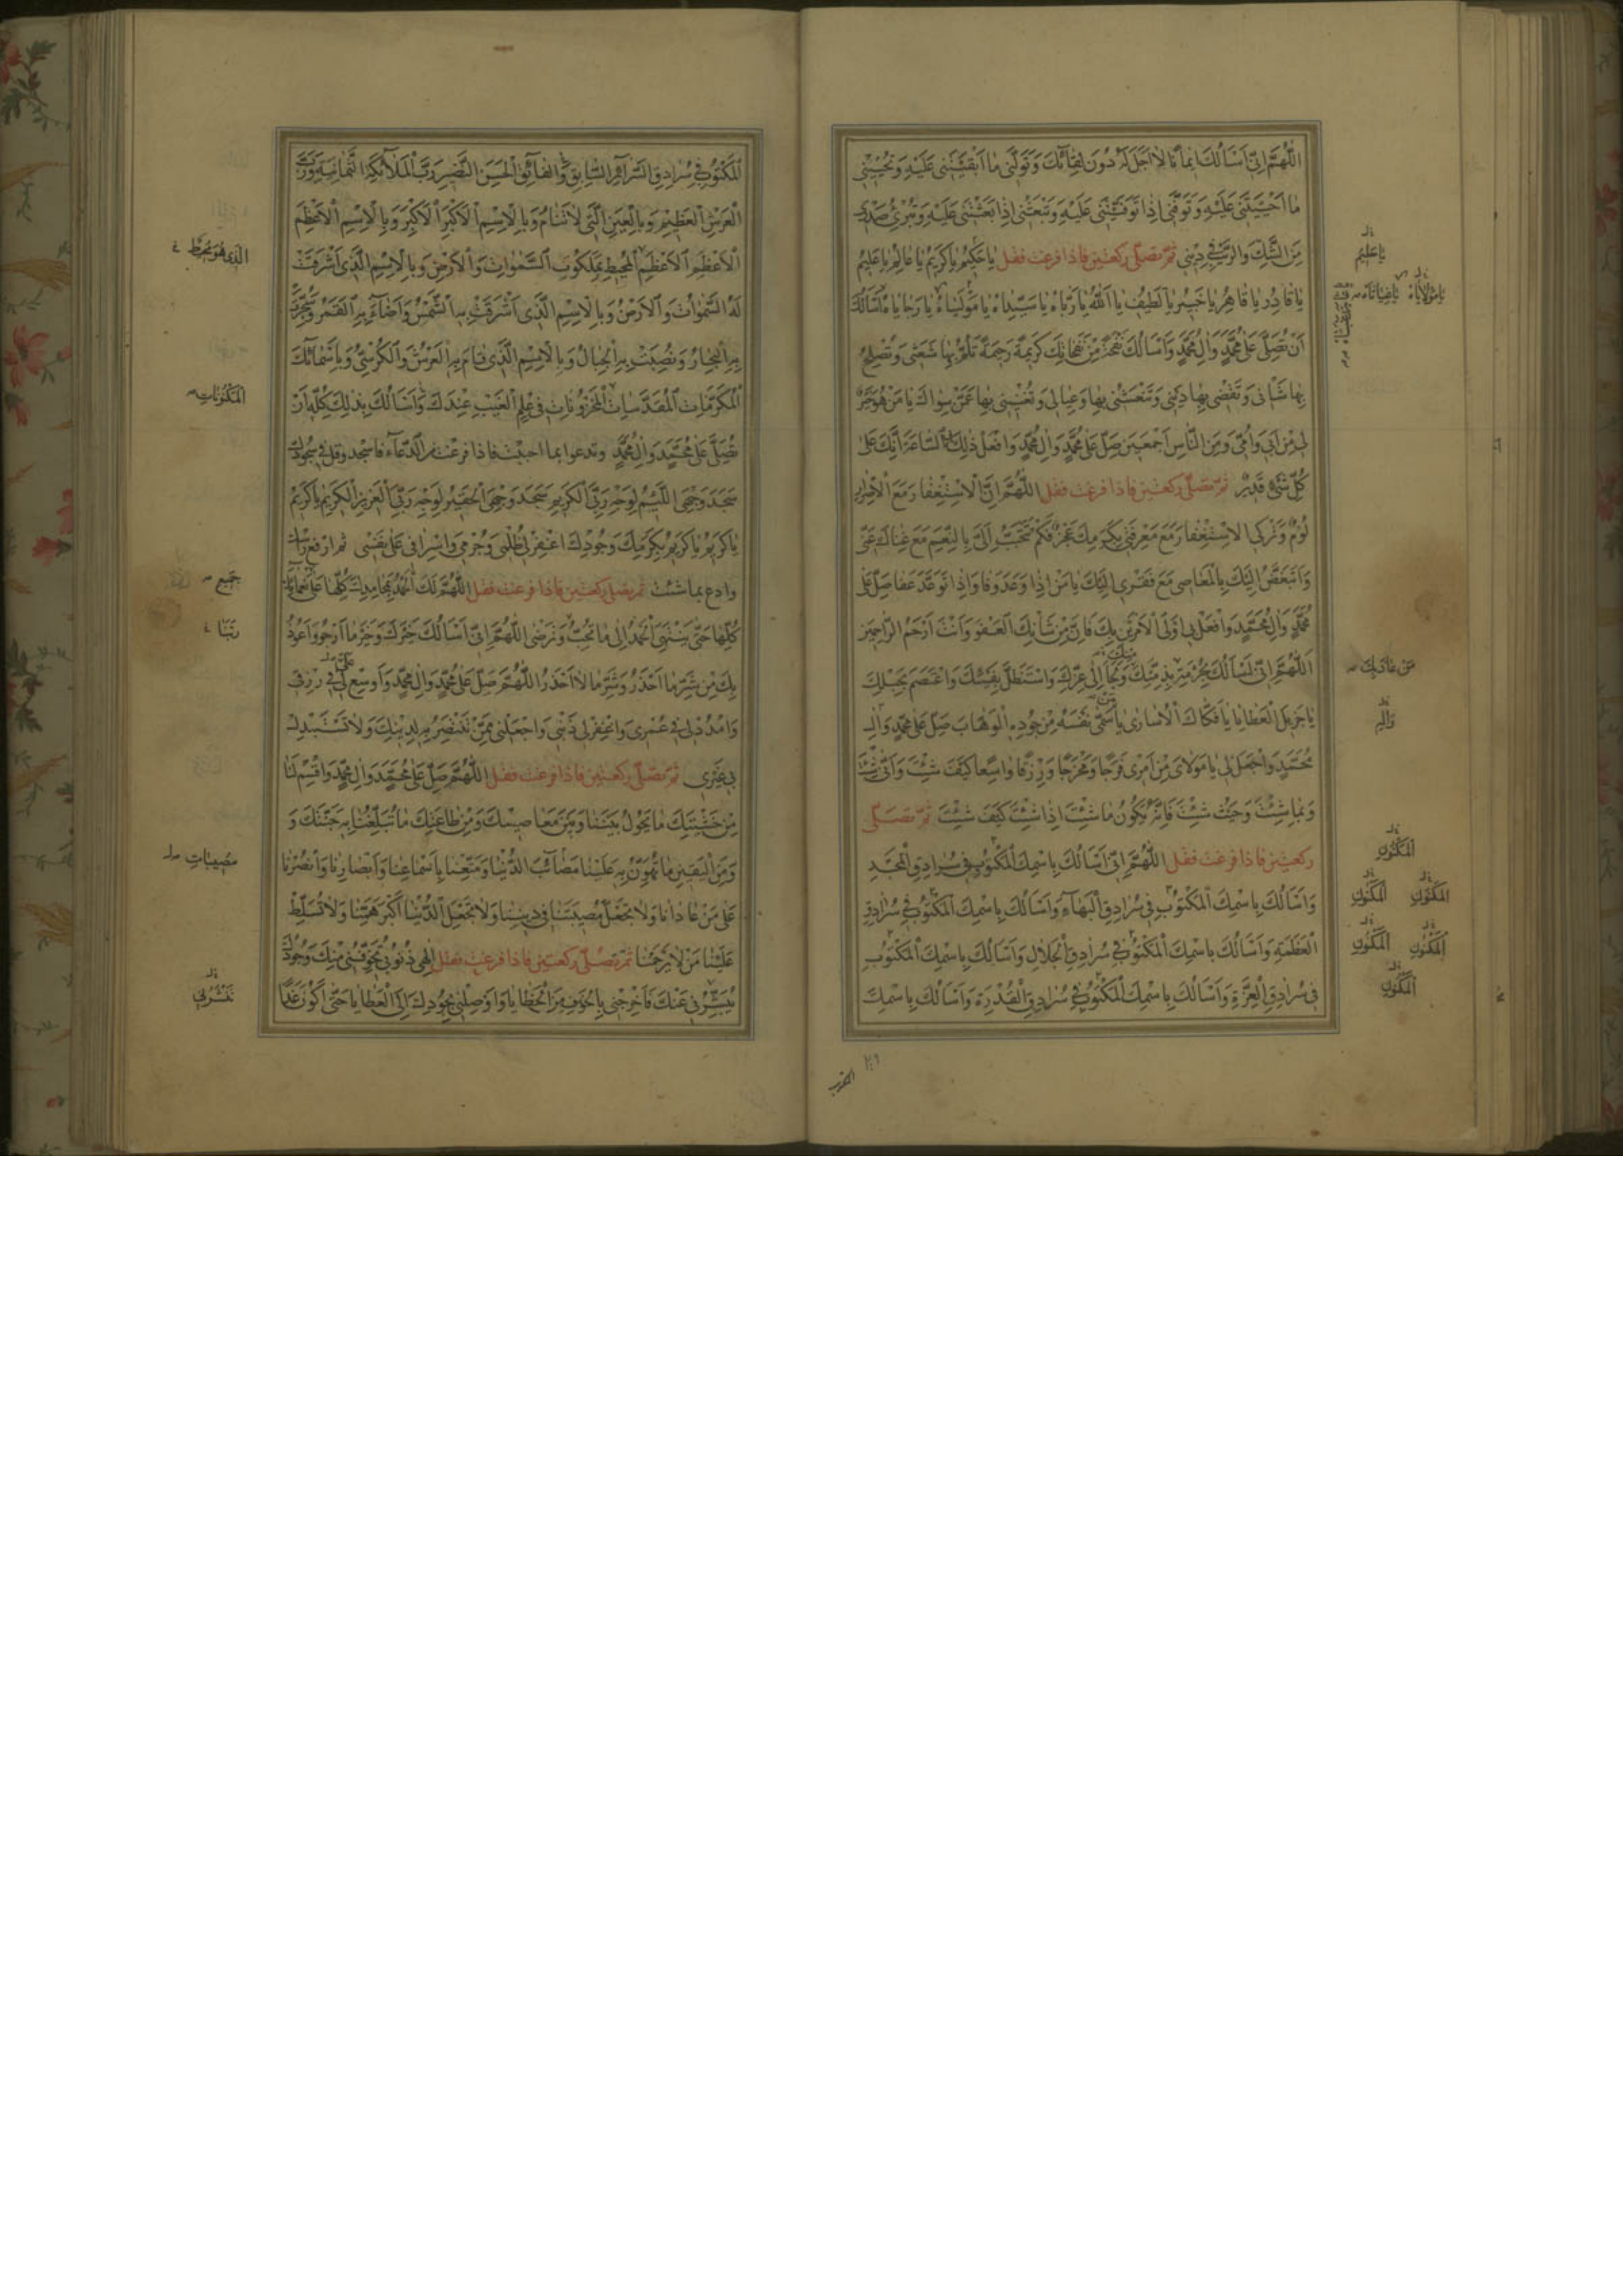 اَللّٰهُمَّ اِنّي اَسْأَلُكَ ايمانًا لا اَجَلَ لَهُ دُونَ لِقائِكَ وَتَوَلَّني ما اَبْقَيْتَني عَلَيْهِ وَتُحْيِيني
ما اَحْيَيْتَني عَلَيْهِ وَتَوَفَّني اِذا تَوَفَّيْتَني عَلَيْهِ وَتَبْعَثُني اِذا بَعَثْتَني عَلَيْهِ وَتُبْرِئُ صَدْري
مِنَ الشَّكِّ وَالرَّيْبِ في ديني ثمّ تصلّي ركعتين فاذا فرغت فقل يا حَكيمُ يا كَريمُ يا عالِمُ يا عَليمُ
يا قادِرُ يا قاهِرُ يا خَبيرُ يا لَطيفُ يا اَللّٰهُ يا رَبّاهُ يا سَيِّداهُ يا مَوْلَياهُ يا رَجاياهُ اَسْأَلُكَ
اَنْ تُصَلِّيَ عَلى مُحَمَّدٍ وَآلِ مُحَمَّدٍ وَاَسْأَلُكَ نَفْحَةً مِنْ نَفَحاتِكَ كَريمَةً رَحيمَةً تَلُمُّ بِها شَعَثي وَتُصْلِحُ
بِها شَأْني وَتَقْضي بِها دَيْني وَتَنْعَشُني بِها وَعِيالي وَتُغْنيني بِها عَمَّنْ سِواكَ يا مَنْ هُوَ خَيْرٌ
لي مِنْ اَبي وَاُمّي وَمِنَ النّاسِ اَجْمَعينَ صَلِّ عَلى مُحَمَّدٍ وَآلِ مُحَمَّدٍ وَافْعَلْ ذٰلِكَ بي السّاعَةَ اِنَّكَ عَلى
كُلِّ شَيْءٍ قَديرٌ ثمّ تصلّي ركعتين فاذا فرغت فقل اَللّٰهُمَّ اِنَّ الاِسْتِغْفارَ مَعَ الاِصْرارِ
لُؤْمٌ وَتَرْكي الاِسْتِغْفارَ مَعَ مَعْرِفَتي بِكَرَمِكَ عَجْزٌ فَكَمْ تَتَحَبَّبُ اِلَيَّ بِالنِّعَمِ مَعَ غِناكَ عَنّي
وَاَتَبَغَّضُ اِلَيْكَ بِالْمَعاصي مَعَ فَقْري اِلَيْكَ يا مَنْ اِذا وَعَدَ وَفا وَاِذا تَوَعَّدَ عَفا صَلِّ عَلى
مُحَمَّدٍ وَآلِ مُحَمَّدٍ وَافْعَلْ بي اَوْلَى الاَمْرَيْنِ بِكَ فَاِنَّ مِنْ شَأْنِكَ الْعَفْوَ وَاَنْتَ اَرْحَمُ الرّاحِمينَ
اَللّٰهُمَّ اِنّي اَسْأَلُكَ بِحُرْمَةِ مَنْ عاذَ بِذِمَّتِكَ وَلَجَأَ اِلى عِزِّكَ وَاسْتَظَلَّ بِفَيْئِكَ وَاعْتَصَمَ بِحَبْلِكَ
يا جَزيلَ الْعَطايا يا فَكّاكَ الاُسارى يا مَنْ سَمّى نَفْسَهُ مِنْ جُودِهِ الْوَهّابَ صَلِّ عَلى مُحَمَّدٍ وَآلِ
مُحَمَّدٍ وَاجْعَلْ لي يا مَوْلايَ مِنْ اَمْري فَرَجًا وَمَخْرَجًا وَرِزْقًا واسِعًا كَيْفَ شِئْتَ وَاَنّى شِئْتَ
وَبِما شِئْتَ وَحَيْثُ شِئْتَ فَاِنَّهُ يَكُونُ ما شِئْتَ اِذا شِئْتَ كَيْفَ شِئْتَ ثمّ تصلّي
ركعتين فاذا فرغت فقل اَللّٰهُمَّ اِنّي اَسْأَلُكَ بِاسْمِكَ الْمَكْتُوبِ في سُرادِقِ الْمَجْدِ
وَاَسْأَلُكَ بِاسْمِكَ الْمَكْتُوبِ في سُرادِقِ الْبَهاءِ وَاَسْأَلُكَ بِاسْمِكَ الْمَكْتُوبِ في سُرادِقِ
الْعَظَمَةِ وَاَسْأَلُكَ بِاسْمِكَ الْمَكْتُوبِ في سُرادِقِ الْجَلالِ وَاَسْأَلُكَ بِاسْمِكَ الْمَكْتُوبِ
في سُرادِقِ الْعِزَّةِ وَاَسْأَلُكَ بِاسْمِكَ الْمَكْتُوبِ في سُرادِقِ الْقُدْرَةِ وَاَسْأَلُكَ بِاسْمِكَ
يا عَليمُ
يا مَوْلاياهُ يا غِياثاهُ
وَآلِهِ
الْمَكْنُونِ
الْمَكْنُونِ الْمَكْنُونِ
الْمَكْنُونِ الْمَكْنُونِ
الْمَكْنُونِ
الْمَكْتُوبِ في سُرادِقِ السَّرائِرِ السّابِقِ الْفائِقِ الْحَسَنِ النَّضيرِ رَبَّ الْمَلائِكَةِ الثَّمانِيَةِ وَرَبَّ
الْعَرْشِ الْعَظيمِ وَبِالْعَيْنِ الَّتي لا تَنامُ وَبِالاِسْمِ الاَكْبَرِ الاَكْبَرِ وَبِالاِسْمِ الاَعْظَمِ
الاَعْظَمِ الاَعْظَمِ الْمُحيطِ بِمَلَكُوتِ السَّمٰواتِ وَالاَرْضِ وَبِالاِسْمِ الَّذي اَشْرَقَتْ
لَهُ السَّمٰواتُ وَالاَرْضُ وَبِالاِسْمِ الَّذي اَشْرَقَتْ بِهِ الشَّمْسُ وَاَضاءَ بِهِ الْقَمَرُ وَسُجِّرَتْ
بِهِ الْبِحارُ وَنُصِبَتْ بِهِ الْجِبالُ وَبِالاِسْمِ الَّذي قامَ بِهِ الْعَرْشُ وَالْكُرْسِيُّ وَبِاَسْمائِكَ
الْمُكَرَّماتِ الْمُقَدَّساتِ الْمَخْزُوناتِ في عِلْمِ الْغَيْبِ عِنْدَكَ وَاَسْأَلُكَ بِذٰلِكَ كُلِّهِ اَنْ
تُصَلِّيَ عَلى مُحَمَّدٍ وَآلِ مُحَمَّدٍ وتدعوا بما احببت فاذا فرغت من الدّعاء فاسجد وقل في سجودك
سَجَدَ وَجْهِيَ اللَّئيمُ لِوَجْهِ رَبِّيَ الْكَريمِ سَجَدَ وَجْهِيَ الْحَقيرُ لِوَجْهِ رَبِّيَ الْعَزيزِ الْكَريمِ يا كَريمُ
يا كَريمُ يا كَريمُ بِكَرَمِكَ وَجُودِكَ اغْفِرْ لي ظُلْمي وَجُرْمي وَاِسْرافي عَلى نَفْسي ثم ارفع رأسك
وادع بما شئت ثم تصلّي ركعتين فاذا فرغت فقل اَللّٰهُمَّ لَكَ الْحَمْدُ بِمَحامِدِكَ كُلِّها عَلى نَعْمائِكَ
كُلِّها حَتّى يَنْتَهِيَ الْحَمْدُ اِلى ما تُحِبُّ وَتَرْضى اَللّٰهُمَّ اِنّي اَسْأَلُكَ خَيْرَكَ وَخَيْرَ ما اَرْجُو وَاَعُوذُ
بِكَ مِنْ شَرِّ ما اَحْذَرُ وَشَرِّ ما لا اَحْذَرُ اَللّٰهُمَّ صَلِّ عَلى مُحَمَّدٍ وَآلِ مُحَمَّدٍ وَاَوْسِعْ لي في رِزْقي
وَامْدُدْ لي في عُمْري وَاغْفِرْ لي ذَنْبي وَاجْعَلْني مِمَّنْ تَنْتَصِرُ بِهِ لِدينِكَ وَلا تَسْتَبْدِلْ
بي غَيْري ثمّ تصلّي ركعتين فاذا فرغت فقل اَللّٰهُمَّ صَلِّ عَلى مُحَمَّدٍ وَآلِ مُحَمَّدٍ وَاقْسِمْ لَنا
مِنْ خَشْيَتِكَ ما يَحُولُ بَيْنَنا وَبَيْنَ مَعاصيكَ وَمِنْ طاعَتِكَ ما تُبَلِّغُنا بِهِ جَنَّتَكَ وَ
وَمِنَ الْيَقينِ ما تُهَوِّنُ بِهِ عَلَيْنا مَصائِبَ الدُّنْيا وَمَتِّعْنا بِاَسْماعِنا وَاَبْصارِنا وَانْصُرْنا
عَلى مَنْ عادانا وَلا تَجْعَلْ مُصيبَتَنا في دينِنا وَلا تَجْعَلِ الدُّنْيا اَكْبَرَ هَمِّنا وَلا تُسَلِّطْ
عَلَيْنا مَنْ لا يَرْحَمُنا ثمّ تصلّي ركعتين فاذا فرغت فقل اِلٰهي ذُنُوبي تُخَوِّفُني مِنْكَ وَجُودُكَ
يُبَشِّرُني عَنْكَ فَاَخْرِجْني بِالْخَوْفِ مِنَ الْخَطايا وَاَوْصِلْني بِجُودِكَ اِلَى الْعَطايا حَتّى اَكُونَ غَدًا
الَّذي هُوَ مُحيطٌ
الْمَكْنُوناتِ
جَميعِ
رَبَّنا
مُصيباتِ